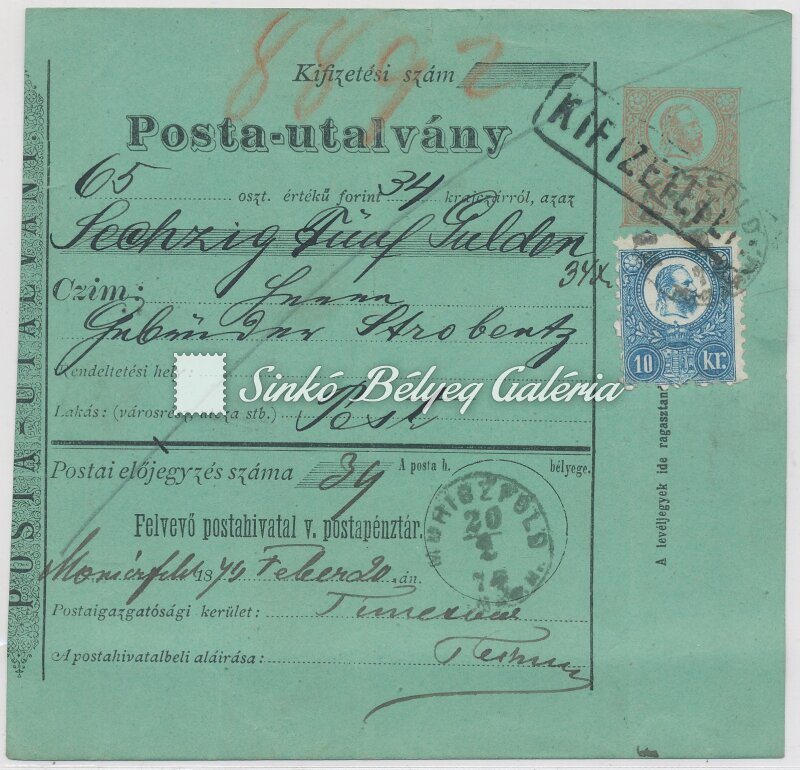 8892
Kifizetési szám
Posta-utalvány
KIFIZETETETT
65 oszt. értékű forint 34 krajczárról, azaz
Sechzig Fünf Gulden
34x.
Czim: Herrn
Gebrüder Strobentz
10 kr.
Rendeltetési hely:
Sinkó Bélyeg Galéria
Lakás: (városrész utcza stb.) Pest
Postai előjegyzés száma 39
A posta h. bélyege.
Felvevő postahivatal v. postapénztár.
MORISZFELD
20
2
74
1874 Feber 20. án.
Postaigazgatósági kerület: Temesvar
A postahivatalbeli aláirása:
POSTA-UTALVÁNY.
A levéljegyek ide ragasztan